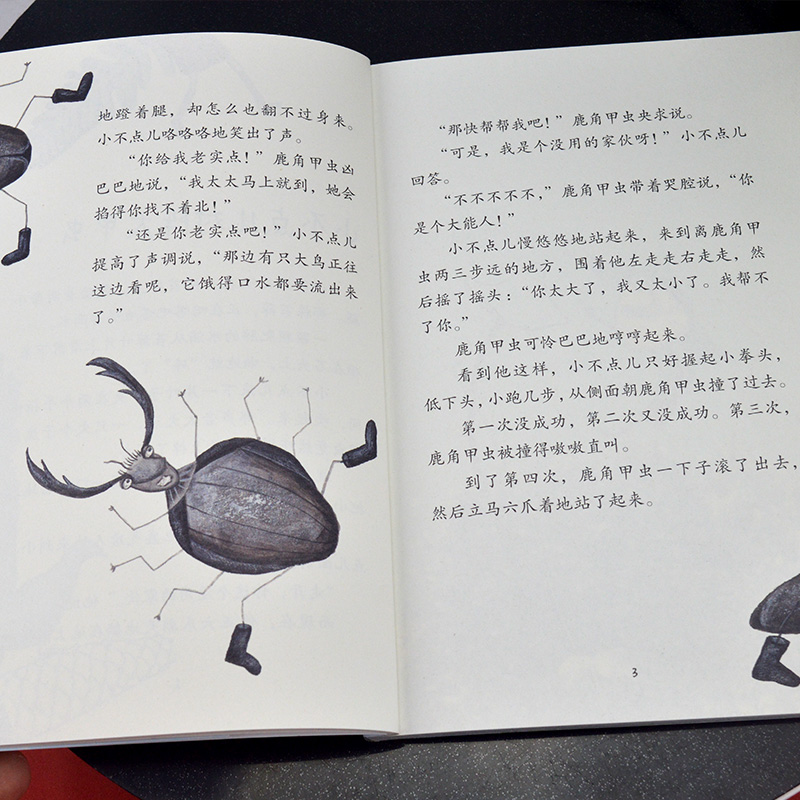 地蹬着腿，却怎么也翻不过身来。
小不点儿咯咯咯地笑出了声。
“你给我老实点！”鹿角甲虫凶
巴巴地说，“我太太马上就到，她会
掐得你找不着北！”
“还是你老实点吧！”小不点儿
提高了声调说，“那边有只大鸟正往
这边看呢，它饿得口水都要流出来
了。”
“那快帮帮我吧！”鹿角甲虫央求说。
“可是，我是个没用的家伙呀！”小不点儿
回答。
“不不不不不，”鹿角甲虫带着哭腔说，“你
是个大能人！”
小不点儿慢悠悠地站起来，来到离鹿角甲
虫两三步远的地方，围着他左走走右走走，然
后摇了摇头：“你太大了，我又太小了。我帮不
了你。”
鹿角甲虫可怜巴巴地哼哼起来。
看到他这样，小不点儿只好握起小拳头，
低下头，小跑几步，从侧面朝鹿角甲虫撞了过去。
第一次没成功，第二次又没成功。第三次，
鹿角甲虫被撞得嗷嗷直叫。
到了第四次，鹿角甲虫一下子滚了出去，
然后立马六爪着地站了起来。
3